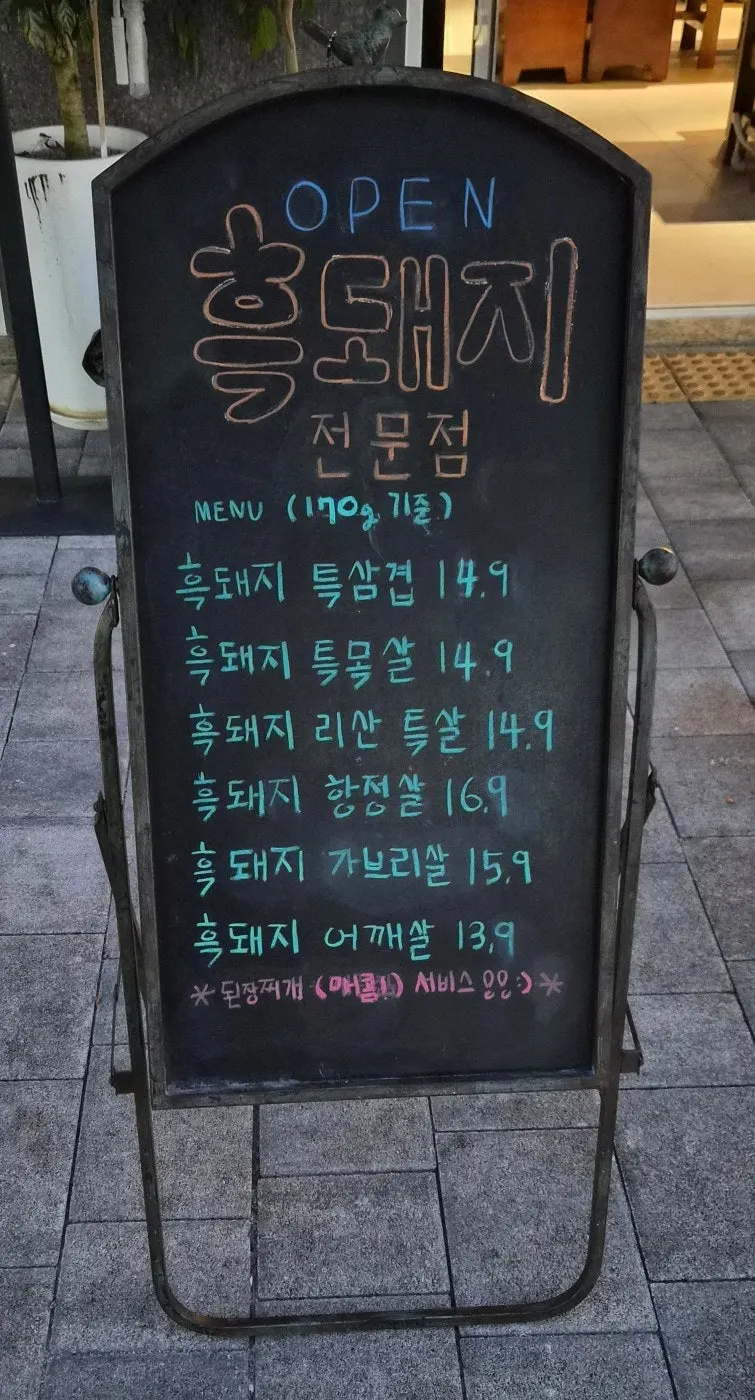 OPEN
흑돼지
전문점
MENU (170g 기준)
흑돼지 특삼겹 14.9
흑돼지 특목살 14.9
흑돼지 리산 특살 14.9
흑돼지 항정살 16.9
흑돼지 가브리살 15.9
흑돼지 어깨살 13.9
*된장찌개 (매콤!) 서비스 :) *